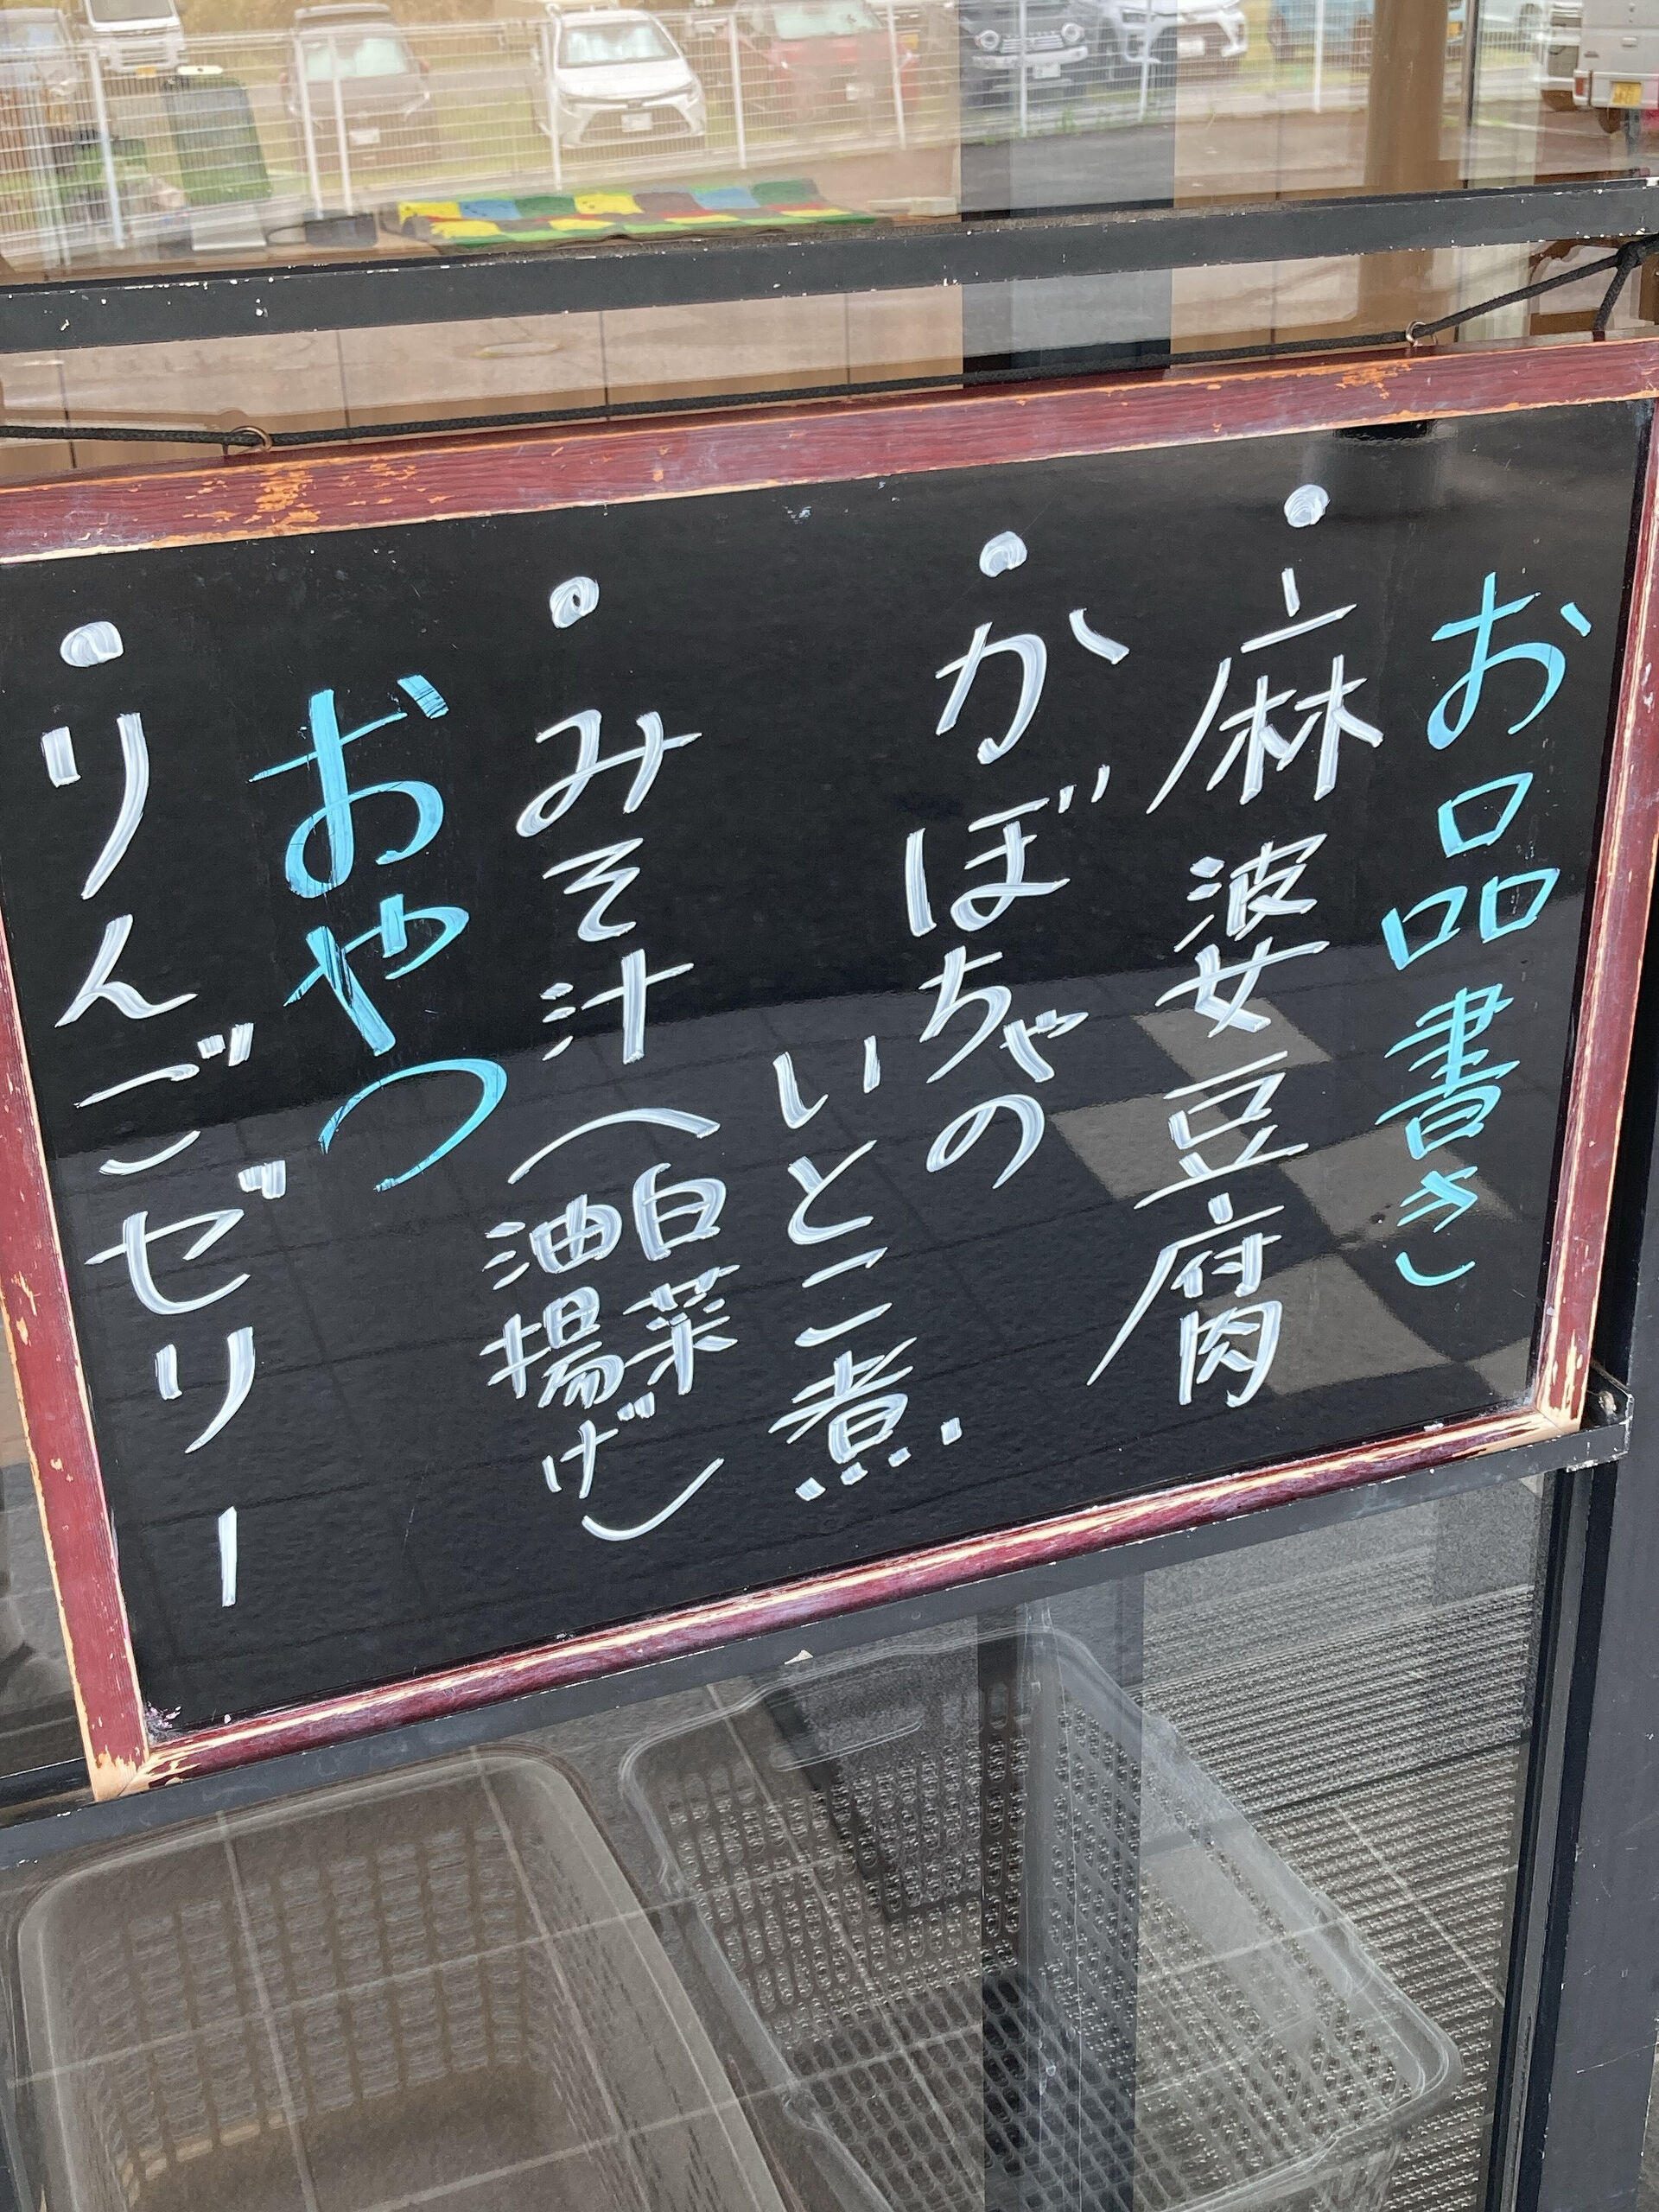 お品書き
・麻婆豆腐
・かぼちゃの
いとこ煮
・みそ汁(白菜
油揚げ)
おやつ
・りんごゼリー